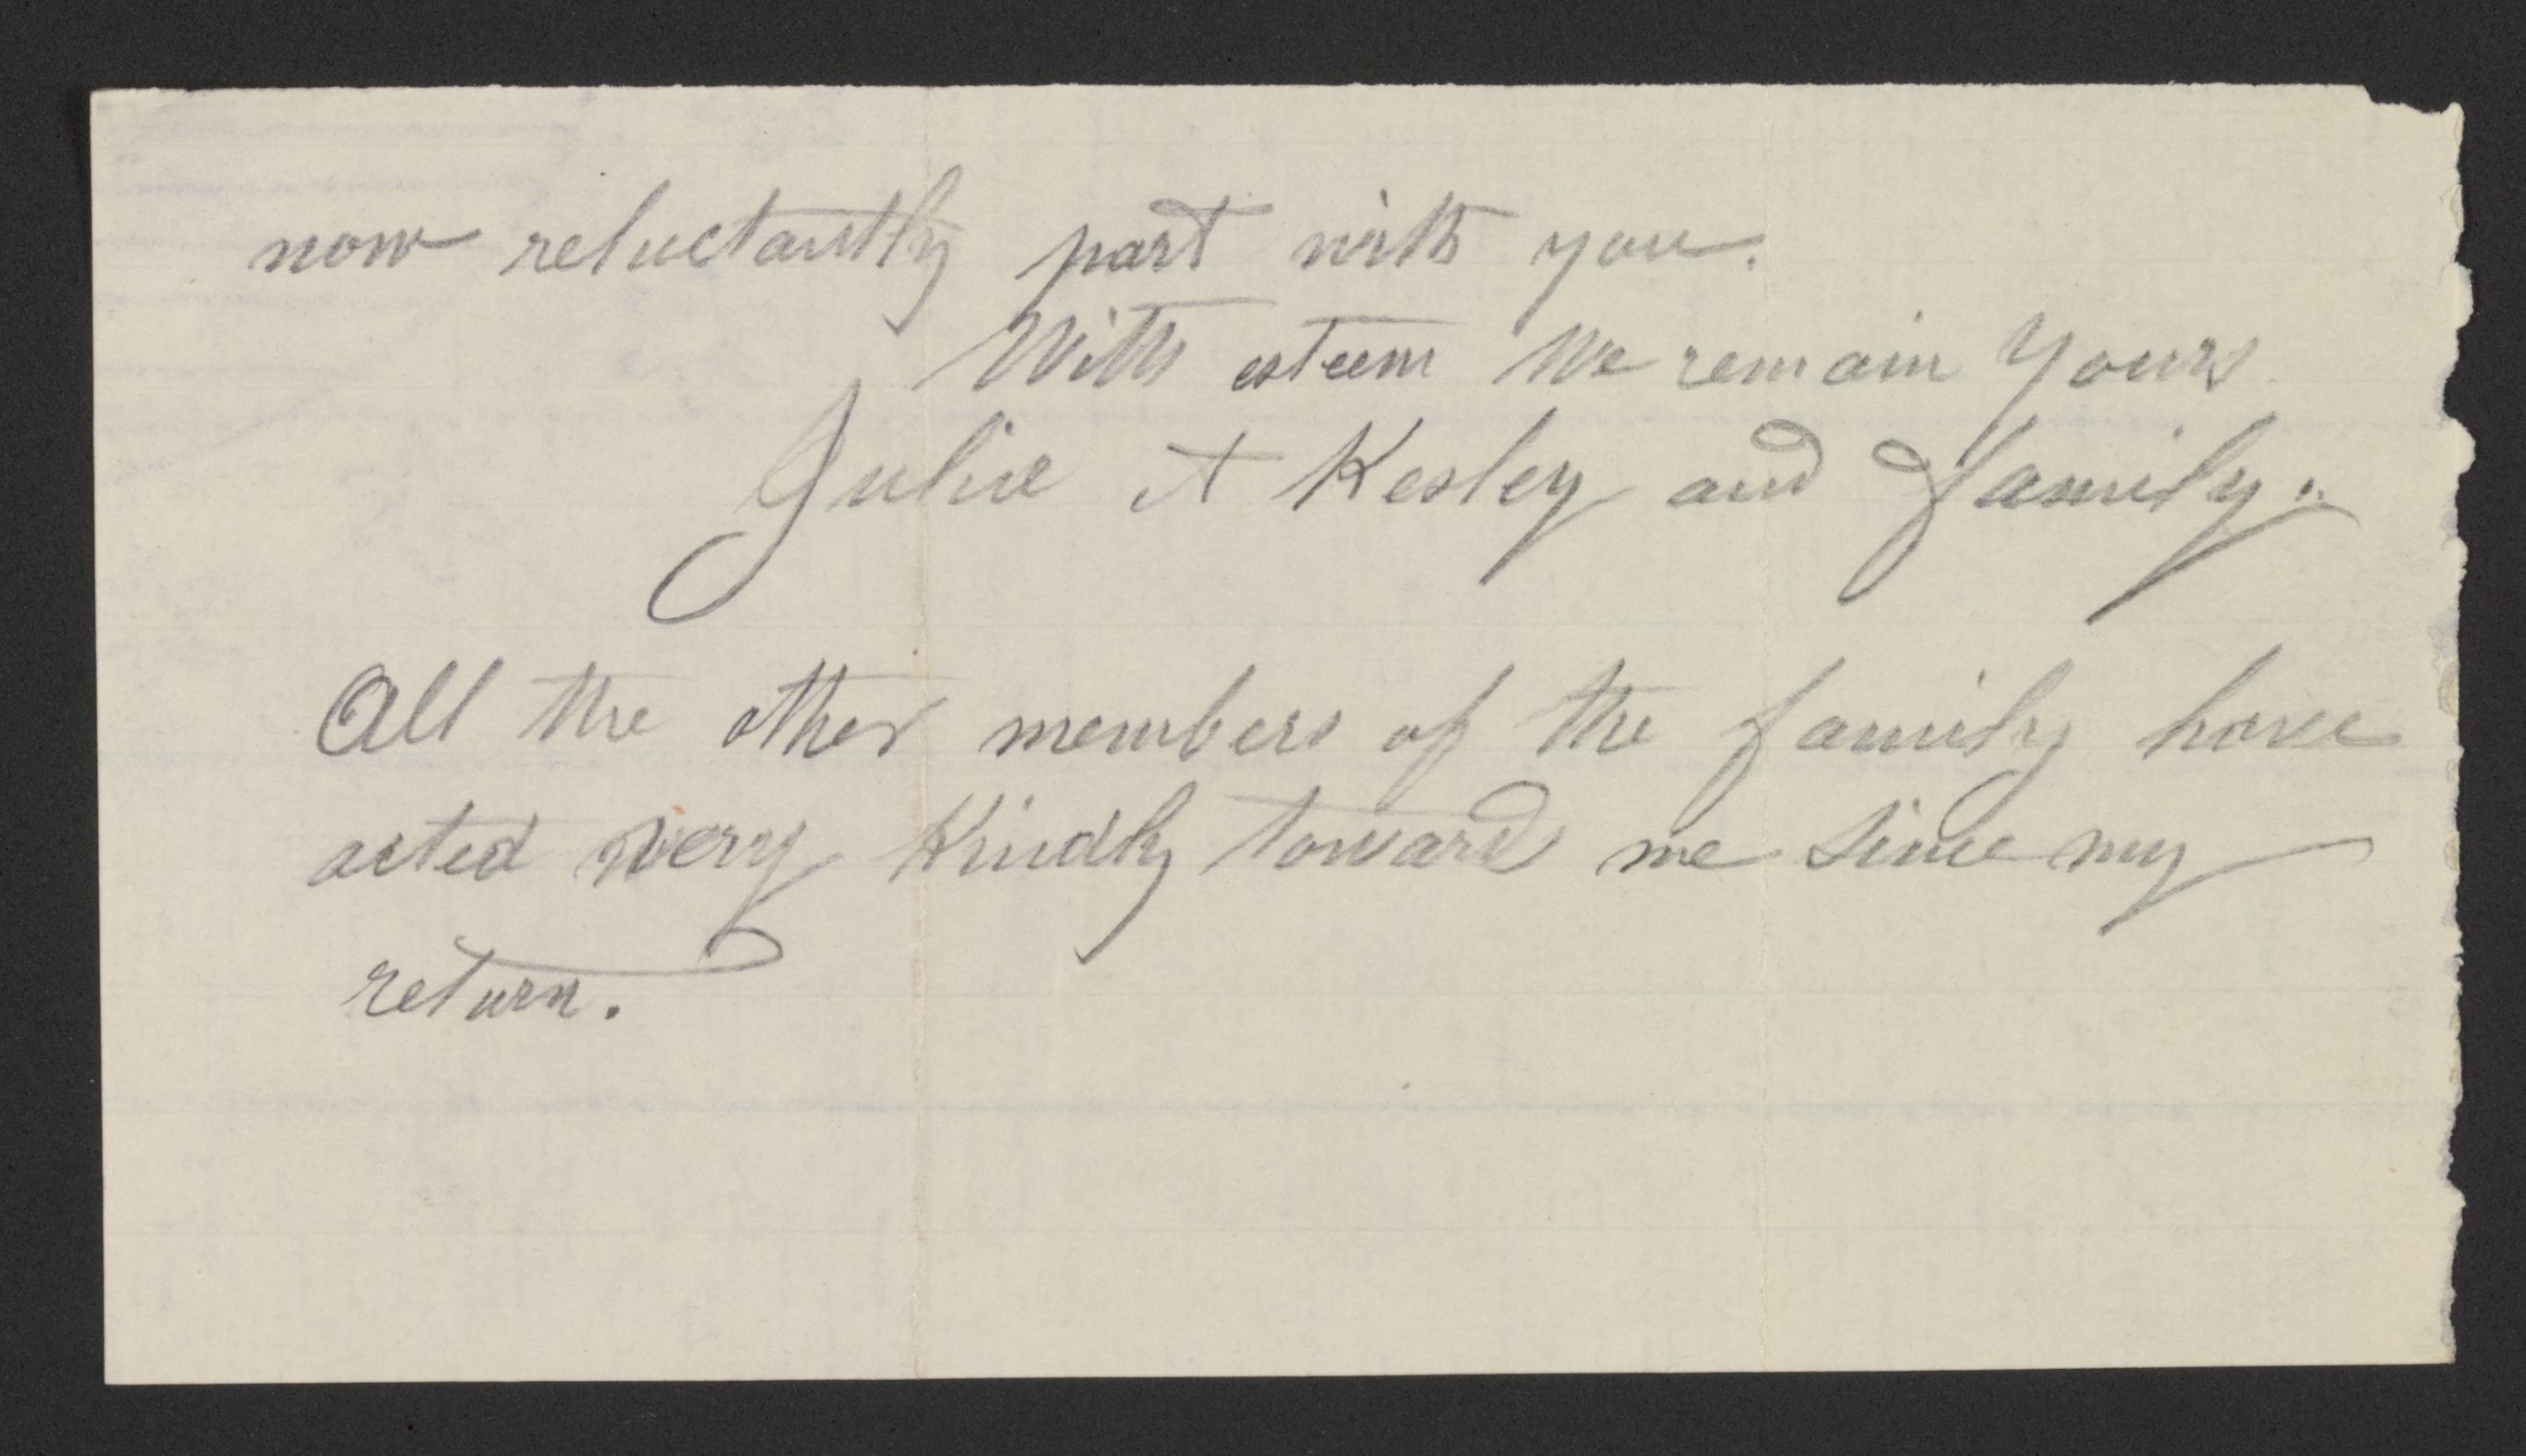 now reluctantly part with you.
With esteem We remain Yours
Julie A Kesley and family.
All the other members of the family have
acted very kindly toward me since my
return.